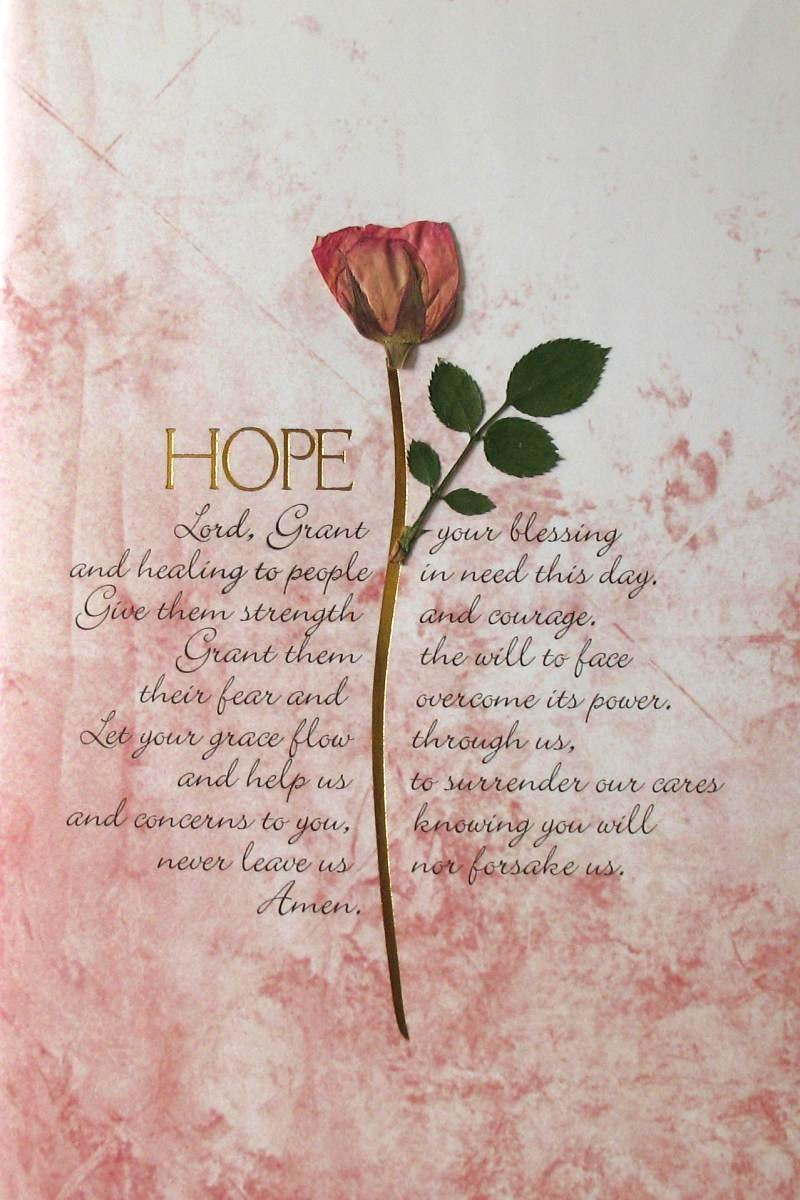 HOPE
Lord, Grant your blessing
and healing to people in need this day.
Give them strength and courage.
Grant them the will to face
their fear and overcome its power.
Let your grace flow through us,
and help us to surrender our cares
and concerns to you, knowing you will
never leave us nor forsake us.
Amen.